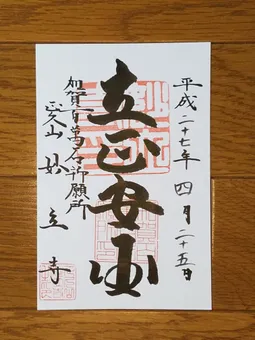 平成二十七年四月二十五日
立正安国
加賀百萬石祈願所
正久山妙立寺